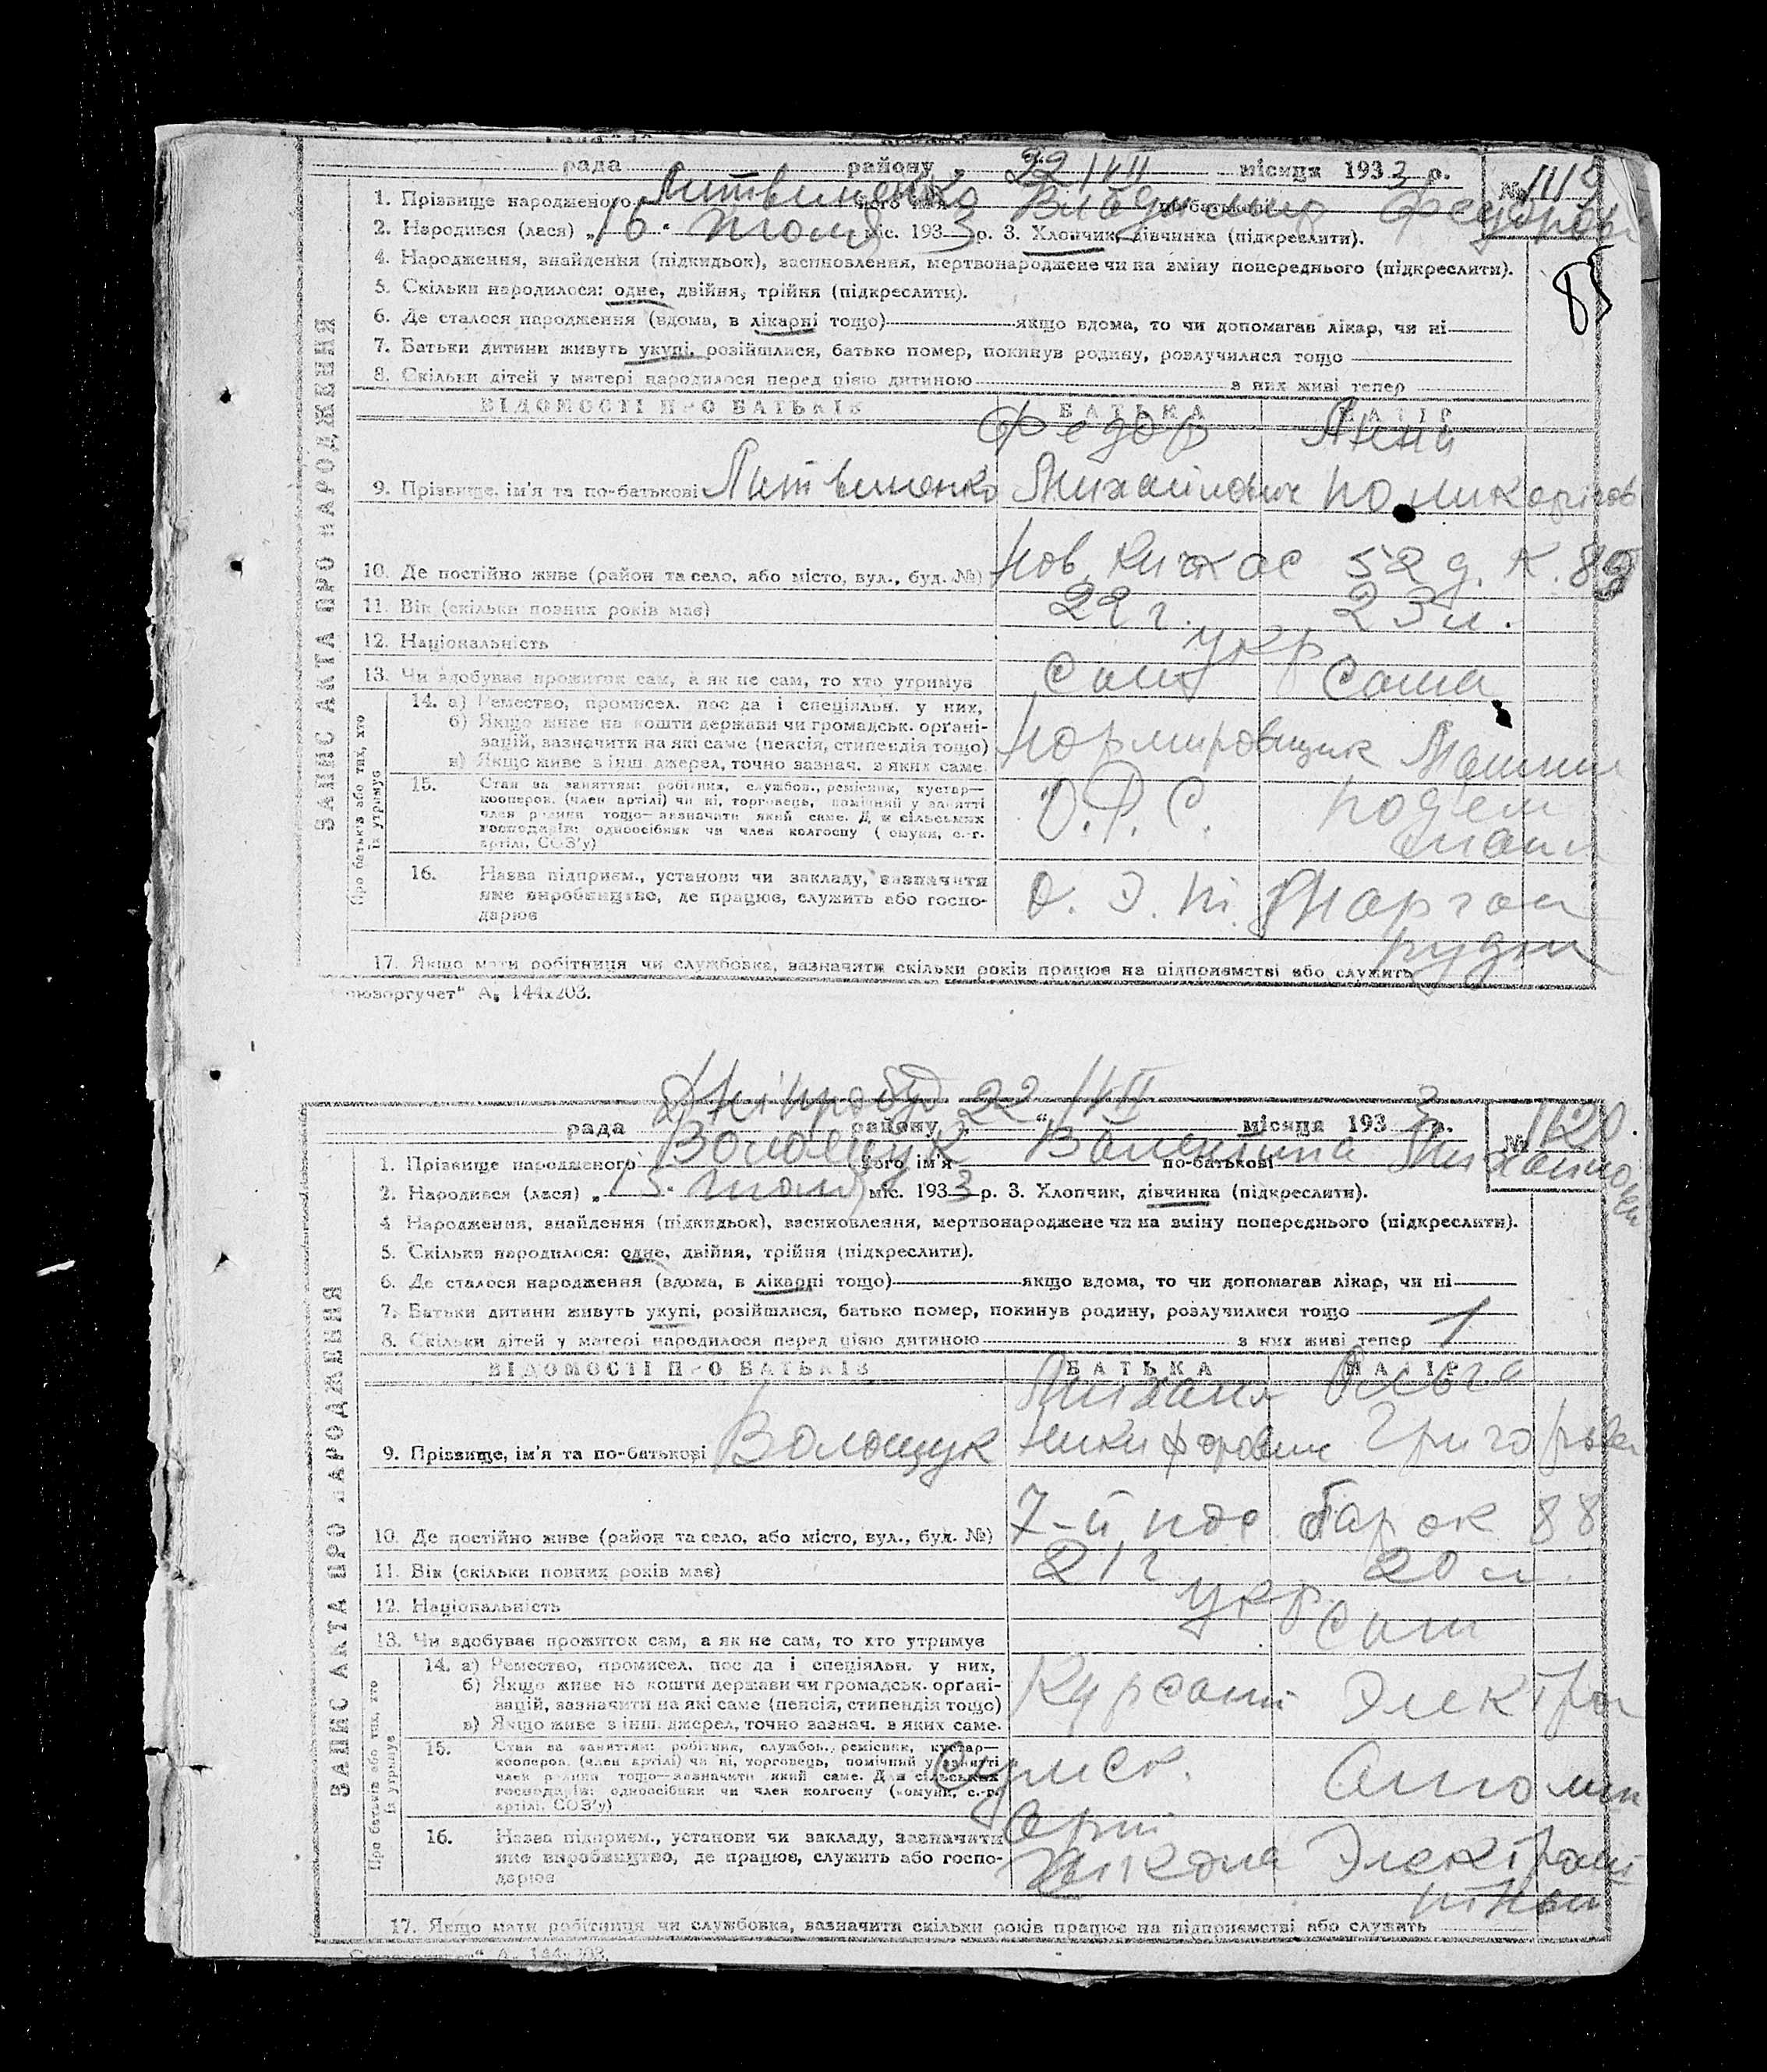 рада району 22/VII місяця 1933 р. № 1119
1. Прізвище народженого Литвиненко його ім'я Владимир по-батькові Федоров
2. Народився (лася) „16" июля міс. 1933 р. 3. Хлопчик, дівчинка (підкреслити).
4. Народження, знайдення (підкидьок), засиновлення, мертвонароджене чи на зміну попереднього (підкреслити).
85
5. Скільки народилося: одне, двійня, трійня (підкреслити).
6. Де сталося народження (вдома, в лікарні тощо) якщо вдома, то чи допомагав лікар, чи ні
7. Батьки дитини живуть укупі, розійшлися, батько помер, покинув родину, розлучилися тощо
8. Скільки дітей у матері народилося перед цією дитиною з них живі тепер
ЗАПИС АКТА ПРО НАРОДЖЕННЯ
ВІДОМОСТІ ПРО БАТЬКІВ БАТЬКА МАТІР
Федор Анна
9. Прізвище, ім'я та по-батькові Литвиненко Михайлович Поликарпов
10. Де постійно живе (район та село, або місто, вул., буд. №) Нов. Кичкас 52 д. К. 89
11. Вік (скільки повних років має) 22 г. 23 л.
12. Національність укр
13. Чи здобуває прожиток сам, а як не сам, то хто утримує Сам Сама
Про батьків або тих, хто їх утримує
14. а) Ремество, промисел, посада і спеціяльн. у них,
б) Якщо живе на кошти держави чи громадськ. органі-
зацій, зазначити на які саме (пенсія, стипендія тощо)
в) Якщо живе з інш. джерел, точно зазнач. з яких саме.
Нормировщик Машин
15. Стан за заняттям: робітник, службов., ремісник, кустар—
кооперов. (член артілі) чи ні, торговець, помічний у занятті
член родини тощо—зазначити який саме. Для сільських
господарів: одноосібник чи член колгоспу (комуни, с.-г.
артілі, СОЗ'у)
О.Р.С. Подъем
16. Назва підприєм., установи чи закладу, зазначити
яке виробництво, де працює, служить або госпо-
дарює
Марган
рудн
17. Якщо мати робітниця чи службовка, зазначити скільки років працює на підприємстві або служить
„Союзоргучет" А₅ 144х203.
Дніпробуд 22/VII
рада району „ " місяця 1933 р. № 1120.
1. Прізвище народженого Волощук його ім'я Валентина по-батькові Михайловн
2. Народився (лася) „15" июля міс. 1933 р. 3. Хлопчик, дівчинка (підкреслити).
4 Народження, знайдення (підкидьок), засиновлення, мертвонароджене чи на зміну попереднього (підкреслити).
5. Скільки народилося: одне, двійня, трійня (підкреслити).
6. Де сталося народження (вдома, в лікарні тощо) якщо вдома, то чи допомагав лікар, чи ні
7. Батьки дитини живуть укупі, розійшлися, батько помер, покинув родину, розлучилися тощо
8. Скільки дітей у матері народилося перед цією дитиною з них живі тепер 1
ЗАПИС АКТА ПРО НАРОДЖЕННЯ
ВІДОМОСТІ ПРО БАТЬКІВ БАТЬКА МАТІР
Михаил Ольга
9. Прізвище, ім'я та по-батькові Волощук Никифорович Григорьев
10. Де постійно живе (район та село, або місто, вул., буд. №) 7-й пос барак 88
11. Вік (скільки повних років має) 21 г 20 л.
12. Національність укр
13. Чи здобуває прожиток сам, а як не сам, то хто утримує Сам
Про батьків або тих, хто їх утримує
14. а) Ремество, промисел, посада і спеціяльн. у них,
б) Якщо живе на кошти держави чи громадськ. органі-
зацій, зазначити на які саме (пенсія, стипендія тощо)
в) Якщо живе з інш. джерел, точно зазнач. з яких саме.
Курсант Электро
15. Стан за заняттям: робітник, службов., ремісник, кустар—
кооперов. (член артілі) чи ні, торговець, помічний у занятті
член родини тощо—зазначити який саме. Для сільських
господарів: одноосібник чи член колгоспу (комуни, с.-г.
артілі, СОЗ'у)
16. Назва підприєм., установи чи закладу, зазначити
яке виробництво, де працює, служить або госпо-
дарює
Арт
школа
17. Якщо мати робітниця чи службовка, зазначити скільки років працює на підприємстві або служить
„Союзоргучет" А₅ 144х203.